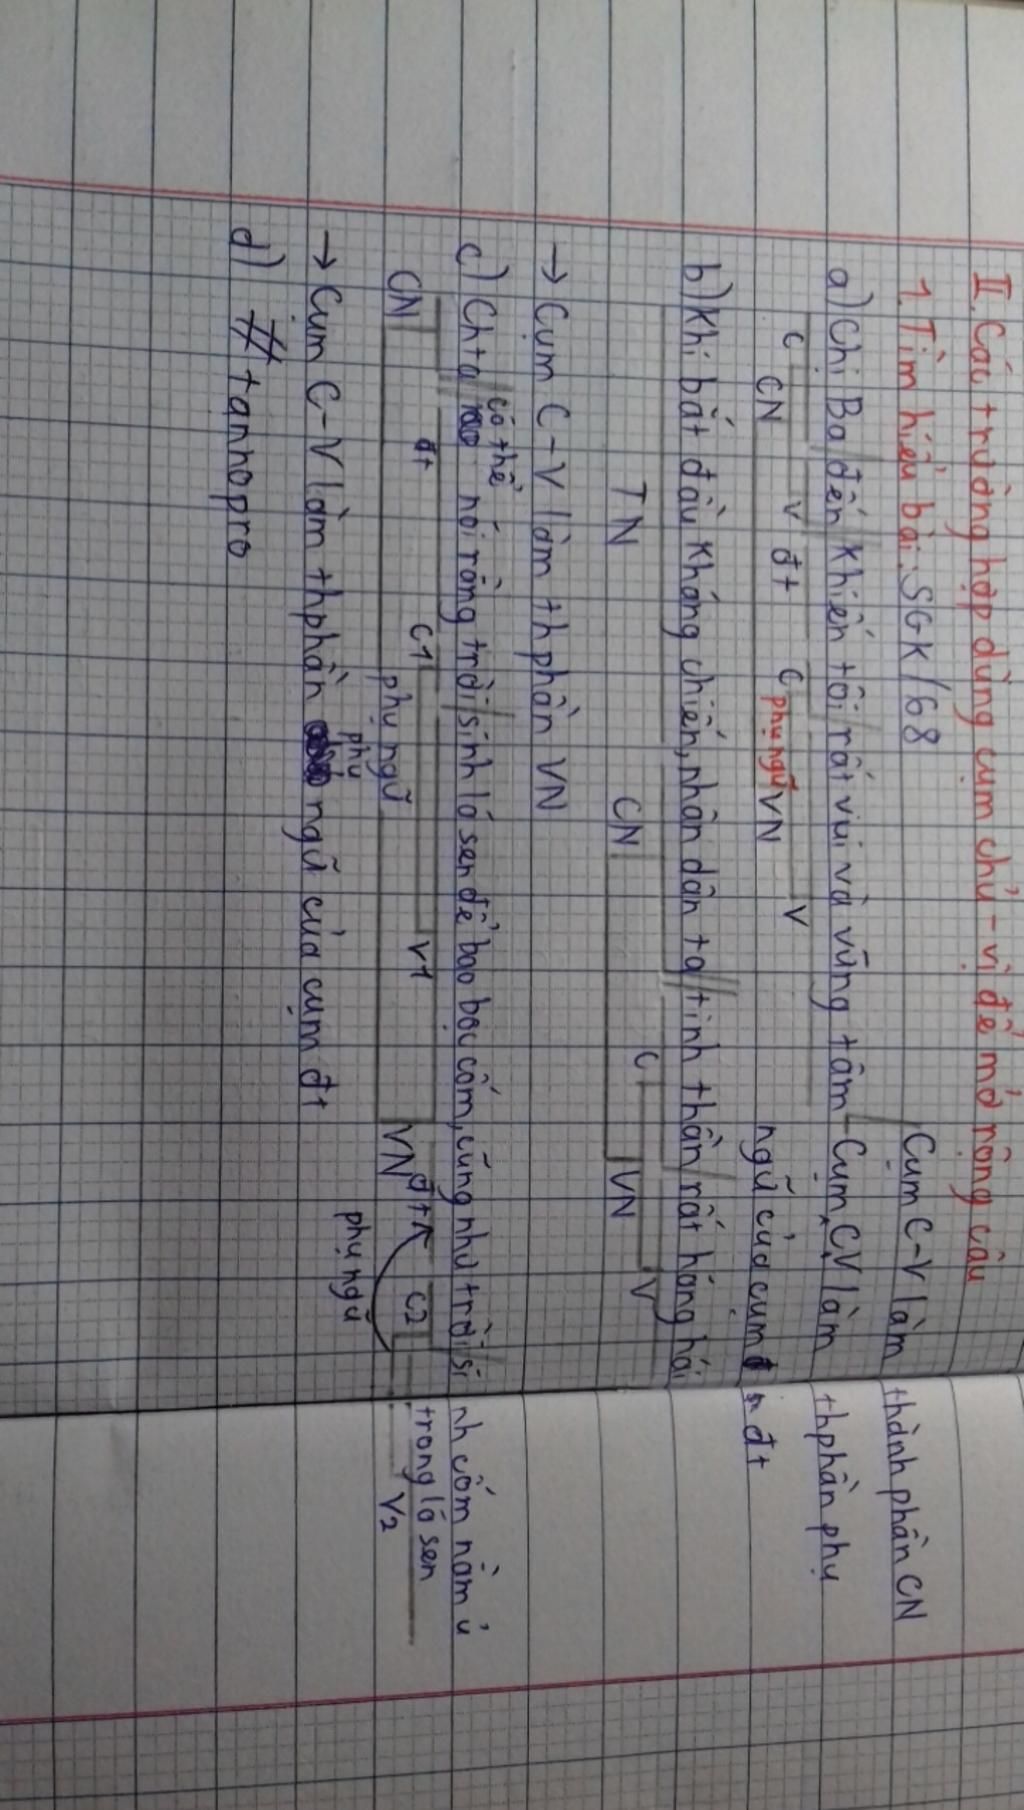 II. Các trường hợp dùng cụm chủ - vị để mở rộng câu
1. Tìm hiểu bài: SGK/68
Cụm C-V làm thành phần CN
a) Chị Ba đến khiến tôi rất vui và vững tâm
Cụm CV làm thphần phụ
C V đt C V
CN phụ ngữ VN
ngữ của cụm đt
b) Khi bắt đầu kháng chiến, nhân dân ta // tinh thần / rất hăng hái
C V
TN CN VN
→ Cụm C-V làm thphần VN
c) Chta // có thể nói rằng trời / sinh lá sen để bao bọc cốm, cũng như trời sinh cốm nằm ủ
trong lá sen
đt C1 V1 đt C2 V2
CN phụ ngữ VN phụ ngữ
→ Cụm C-V làm thphần phụ ngữ của cụm đt
d) # tanhopro